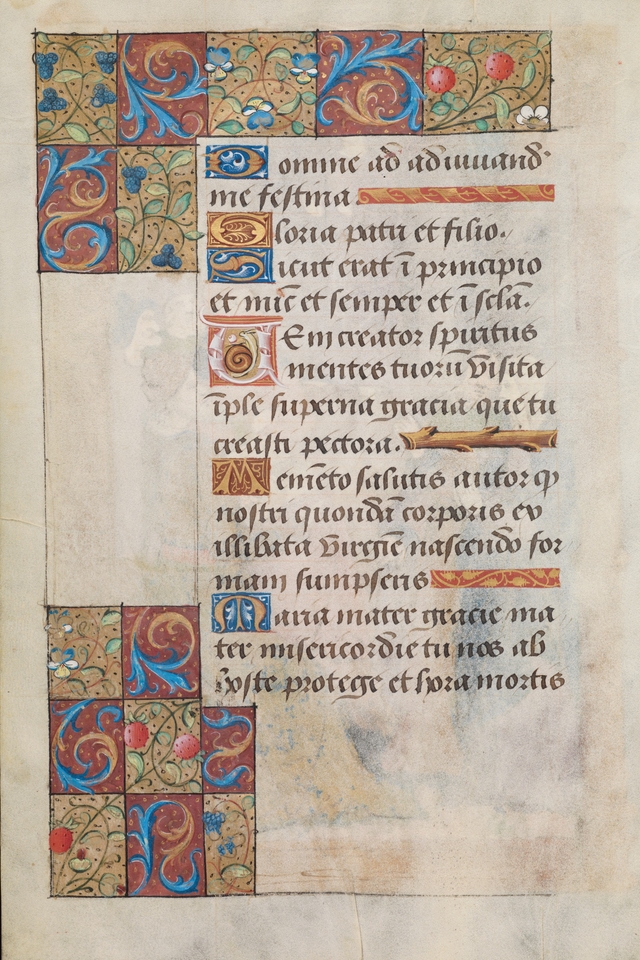 Domine ad adiuuand
me festina.
Gloria patri et filio.
Sicut erat ī principio
et nūc et semper et ī scla.
Veni creator spiritus
mentes tuorū visita
īple superna gracia que tu
creasti pectora.
Memēto salutis autor q
nostri quondā corporis ex
illibata virgīe nascendo for
mam sumpseris
Maria mater gracie ma
ter misericordie tu nos ab
hoste protege et hora mortis